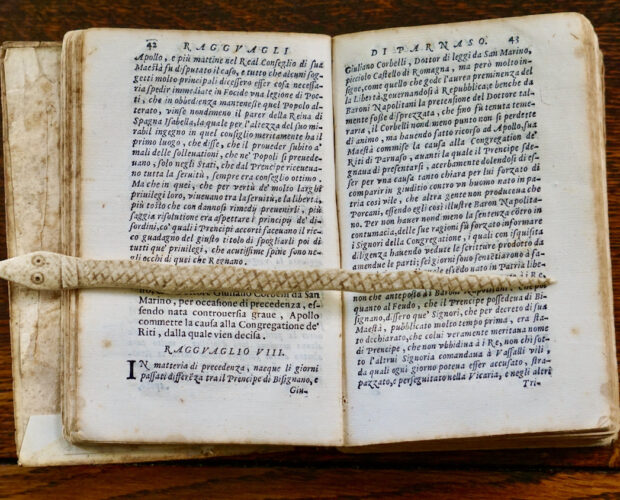 42 RAGGVAGLI
Apollo, e più mattine nel Real Conseglio di sua
Maestà fu disputato il caso, e tutto che alcuni sog
getti molto principali dicessero esser cosa necessa
ria spedir immediate in Focide vna legione di Poe-
ti, che in obbedienza mantenesse quel Popolo al-
terato, vinse nondimeno il parer della Reina di
Spagna Isabella, la quale per l'altezza del suo mi-
rabil ingegno in quel conseglio meritamente ha il
primo luogo, che disse, che il proueder subito a'
mali delle solleuationi, che ne' Popoli si preuede-
uano, solo negli Stati, che dal Prencipe riceueua-
no tutta la seruitù, sempre era conseglio ottimo.
Ma che in quei, che per vertù de' molto larghi
priuilegi loro, viueuano tra la seruitù, e la libertà,
più tosto che con dannosi rimedij preuenirli, più
saggia risolutione era aspettare i principij de' di-
sordini, co' quali i Prencipi accorti faceuano il ric-
co guadagno del giusto titolo di spogliarli poi di
tutti que' priuilegi, che acutissime spine sono ne-
gli occhi di quei che Regnano.
Giuliano Corbelli da San
Marino, per occasione di precedenza, es-
sendo nata controuersia graue, Apollo
commette la causa alla Congregatione de'
Riti, dalla quale vien decisa.
RAGGVAGLIO VIII.
IN matteria di precedenza, nacque li giorni
passati differẽza tra il Prencipe di Bisignano, e
Giu-
DI PARNASO. 43
Giuliano Corbelli, Dottor di leggi da San Marino,
picciolo Castello di Romagna, ma però molto in-
signe, come quello che gode l'aurea preminenza del
la Libertà, gouernandosi à Republica; benche da
Baroni Napolitani la pretensione del Dottore tal-
mente fosse disprezzata, che fino fù tenuta teme-
raria, il Corbelli nondimeno punto non si perdette
di animo, ma hauendo fatto ricorso ad Apollo, sua
Maestà commise la causa alla Congregation de'
Riti di Parnaso, auanti la quale il Prencipe sde-
gnaua di presentarsi, acerbamente dolendosi di es-
ser per vna causa tanto chiara per lui forzato di
comparir in giuditio contro vn huomo nato in pa-
tria così vile, che altra gente non produceua che
Porcani, essendo egli così illustre Baron Napolita-
no. Per non hauer nondimeno la sentenza cõtro in
contumacia, delle sue ragioni fù forzato informare
i Signori della Congregatione, i quali con isquisita
diligenza hauendo vedute le scritture prodotte da
amendue le parti; sei giorni sono sentẽtiarono à fa-
quale essẽdo nato in Patria libe-
non che anteposto ai Baroni Napolitani
quanto al Feudo, che il Prencipe possedeua di Bi-
signano, dissero que' Signori, che per decreto di sua
Maestà, pubblicato molto tempo prima, era sta-
to dechiarato, che colui veramente meritaua nome
di Prencipe, che non vbbidina à i Re, non chi sot-
to l'altrui Signoria comandaua à Vassalli vili,
da quali ogni giorno poteua esser accusato, stra-
pazzato, e perseguitato nella Vicaria, e negli altri
Tri-